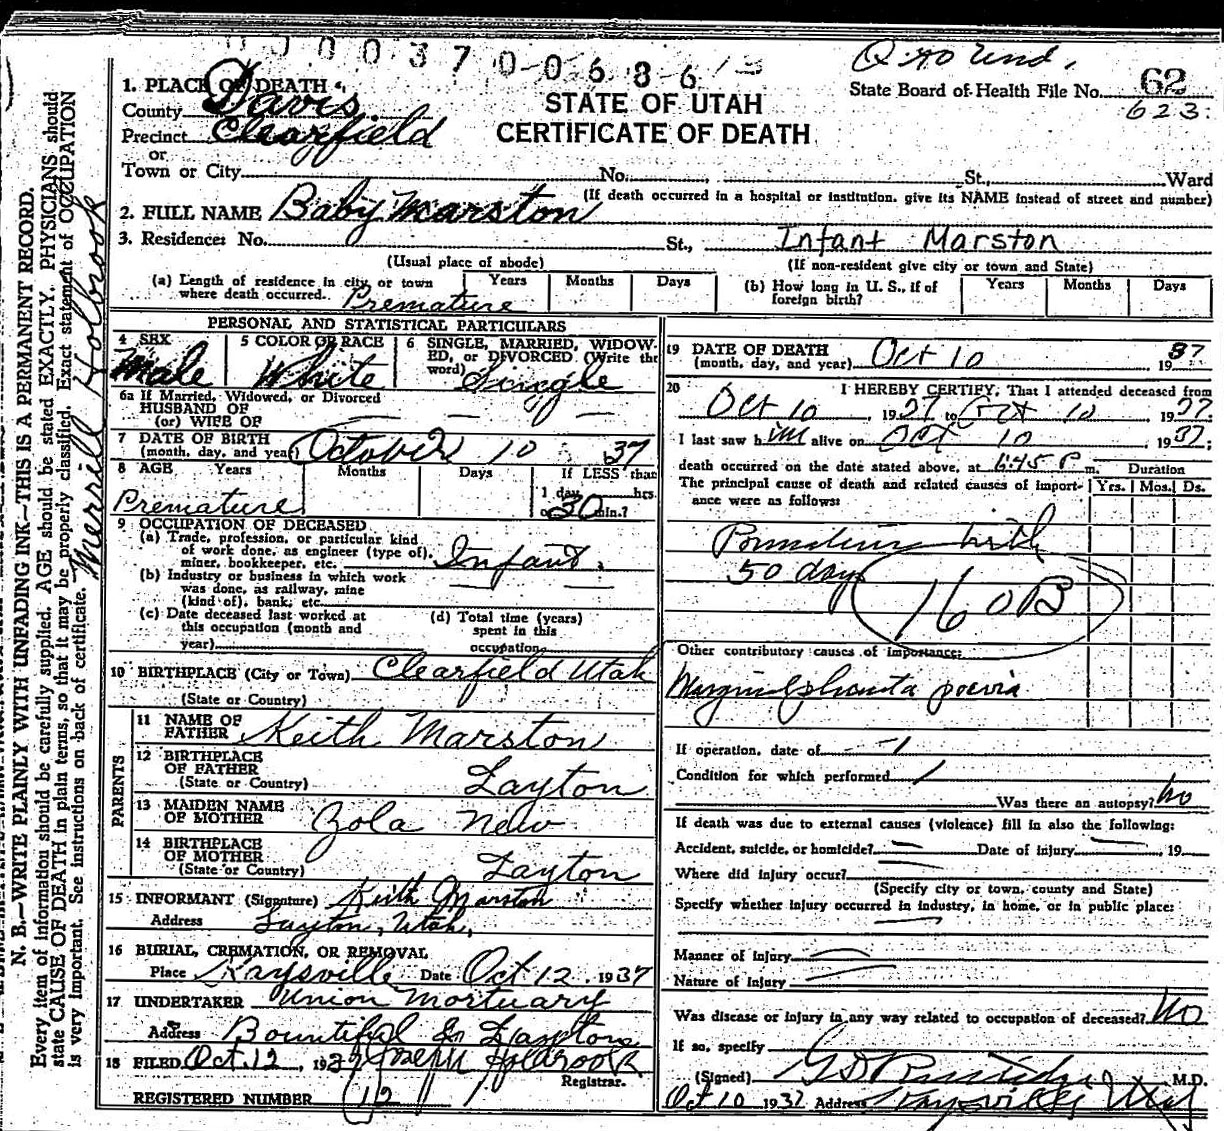 0000370068613
1. PLACE OF DEATH
County Davis
Precinct Clearfield
or
Town or City
STATE OF UTAH
CERTIFICATE OF DEATH
State Board of Health File No. 62
623.
No. St., Ward
(If death occurred in a hospital or institution, give its NAME instead of street and number)
2. FULL NAME Baby Marston
3. Residence: No. St., Infant Marston
(Usual place of abode) (If non-resident give city or town and State)
(a) Length of residence in city or town where death occurred. Premature Years Months Days
(b) How long in U. S., if of foreign birth? Years Months Days
PERSONAL AND STATISTICAL PARTICULARS
4 SEX Male
5 COLOR OR RACE White
6 SINGLE, MARRIED, WIDOWED, or DIVORCED (Write the word) Single
6a If Married, Widowed, or Divorced
HUSBAND OF
(or) WIFE OF
7 DATE OF BIRTH
(month, day, and year) October 10 37
8 AGE Years Months Days If LESS than
1 day hrs.
Premature or 30 min.?
9 OCCUPATION OF DECEASED
(a) Trade, profession, or particular kind
of work done, as engineer (type of),
miner, bookkeeper, etc. Infant.
(b) Industry or business in which work
was done, as railway, mine
(kind of), bank, etc.
(c) Date deceased last worked at
this occupation (month and
year)
(d) Total time (years)
spent in this
occupation
10 BIRTHPLACE (City or Town) Clearfield Utah
(State or Country)
PARENTS
11 NAME OF
FATHER Keith Marston
12 BIRTHPLACE
OF FATHER
(State or Country) Layton
13 MAIDEN NAME
OF MOTHER Zola New
14 BIRTHPLACE
OF MOTHER
(State or Country) Layton
15 INFORMANT (Signature) Keith Marston
Address Layton, Utah,
16 BURIAL, CREMATION, OR REMOVAL
Place Kaysville Date Oct 12, 1937
17 UNDERTAKER Union Mortuary
Address Bountiful & Layton
18 FILED Oct. 12, 1937 Joseph Holbrook
Registrar.
REGISTERED NUMBER 12
19 DATE OF DEATH
(month, day, and year) Oct 10 1937
20 I HEREBY CERTIFY, That I attended deceased from
Oct 10, 1937 to Oct 10 1937
I last saw him alive on Oct 10 1937;
death occurred on the date stated above, at 6:45 P m. Duration
The principal cause of death and related causes of importance were as follows: Yrs. Mos. Ds.
Premature birth
50 days
160B
Other contributory causes of importance:
Marginal placenta previa
If operation, date of
Condition for which performed
Was there an autopsy? No
If death was due to external causes (violence) fill in also the following:
Accident, suicide, or homicide? Date of injury , 19
Where did injury occur?
(Specify city or town, county and State)
Specify whether injury occurred in industry, in home, or in public place:
Manner of injury
Nature of injury
Was disease or injury in any way related to occupation of deceased? No
If so, specify
(Signed) M.D.
Oct 10 1937 Address Kaysville Utah
N. B.—WRITE PLAINLY WITH UNFADING INK—THIS IS A PERMANENT RECORD.
Every item of information should be carefully supplied. AGE should be stated EXACTLY. PHYSICIANS should
state CAUSE OF DEATH in plain terms, so that it may be properly classified. Exact statement of OCCUPATION
is very important. See instructions on back of certificate.
Merrill Holbrook